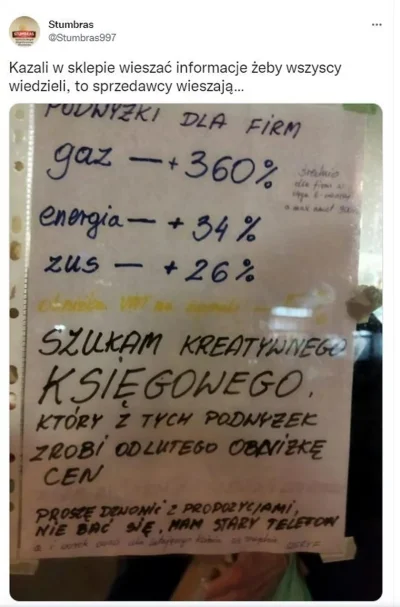 Stumbras
@Stumbras997
Kazali w sklepie wieszać informacje żeby wszyscy
wiedzieli, to sprzedawcy wieszają...
PODWYŻKI DLA FIRM
gaz — + 360%
średnio
dla firm w
energia — + 34%
zus — + 26%
SZUKAM KREATYWNEGO
KSIĘGOWEGO,
KTÓRY Z TYCH PODWYŻEK
ZROBI OD LUTEGO OBNIŻKĘ
CEN
PROSZĘ DZWONIĆ Z PROPOZYCJAMI,
NIE BAĆ SIĘ, MAM STARY TELEFON